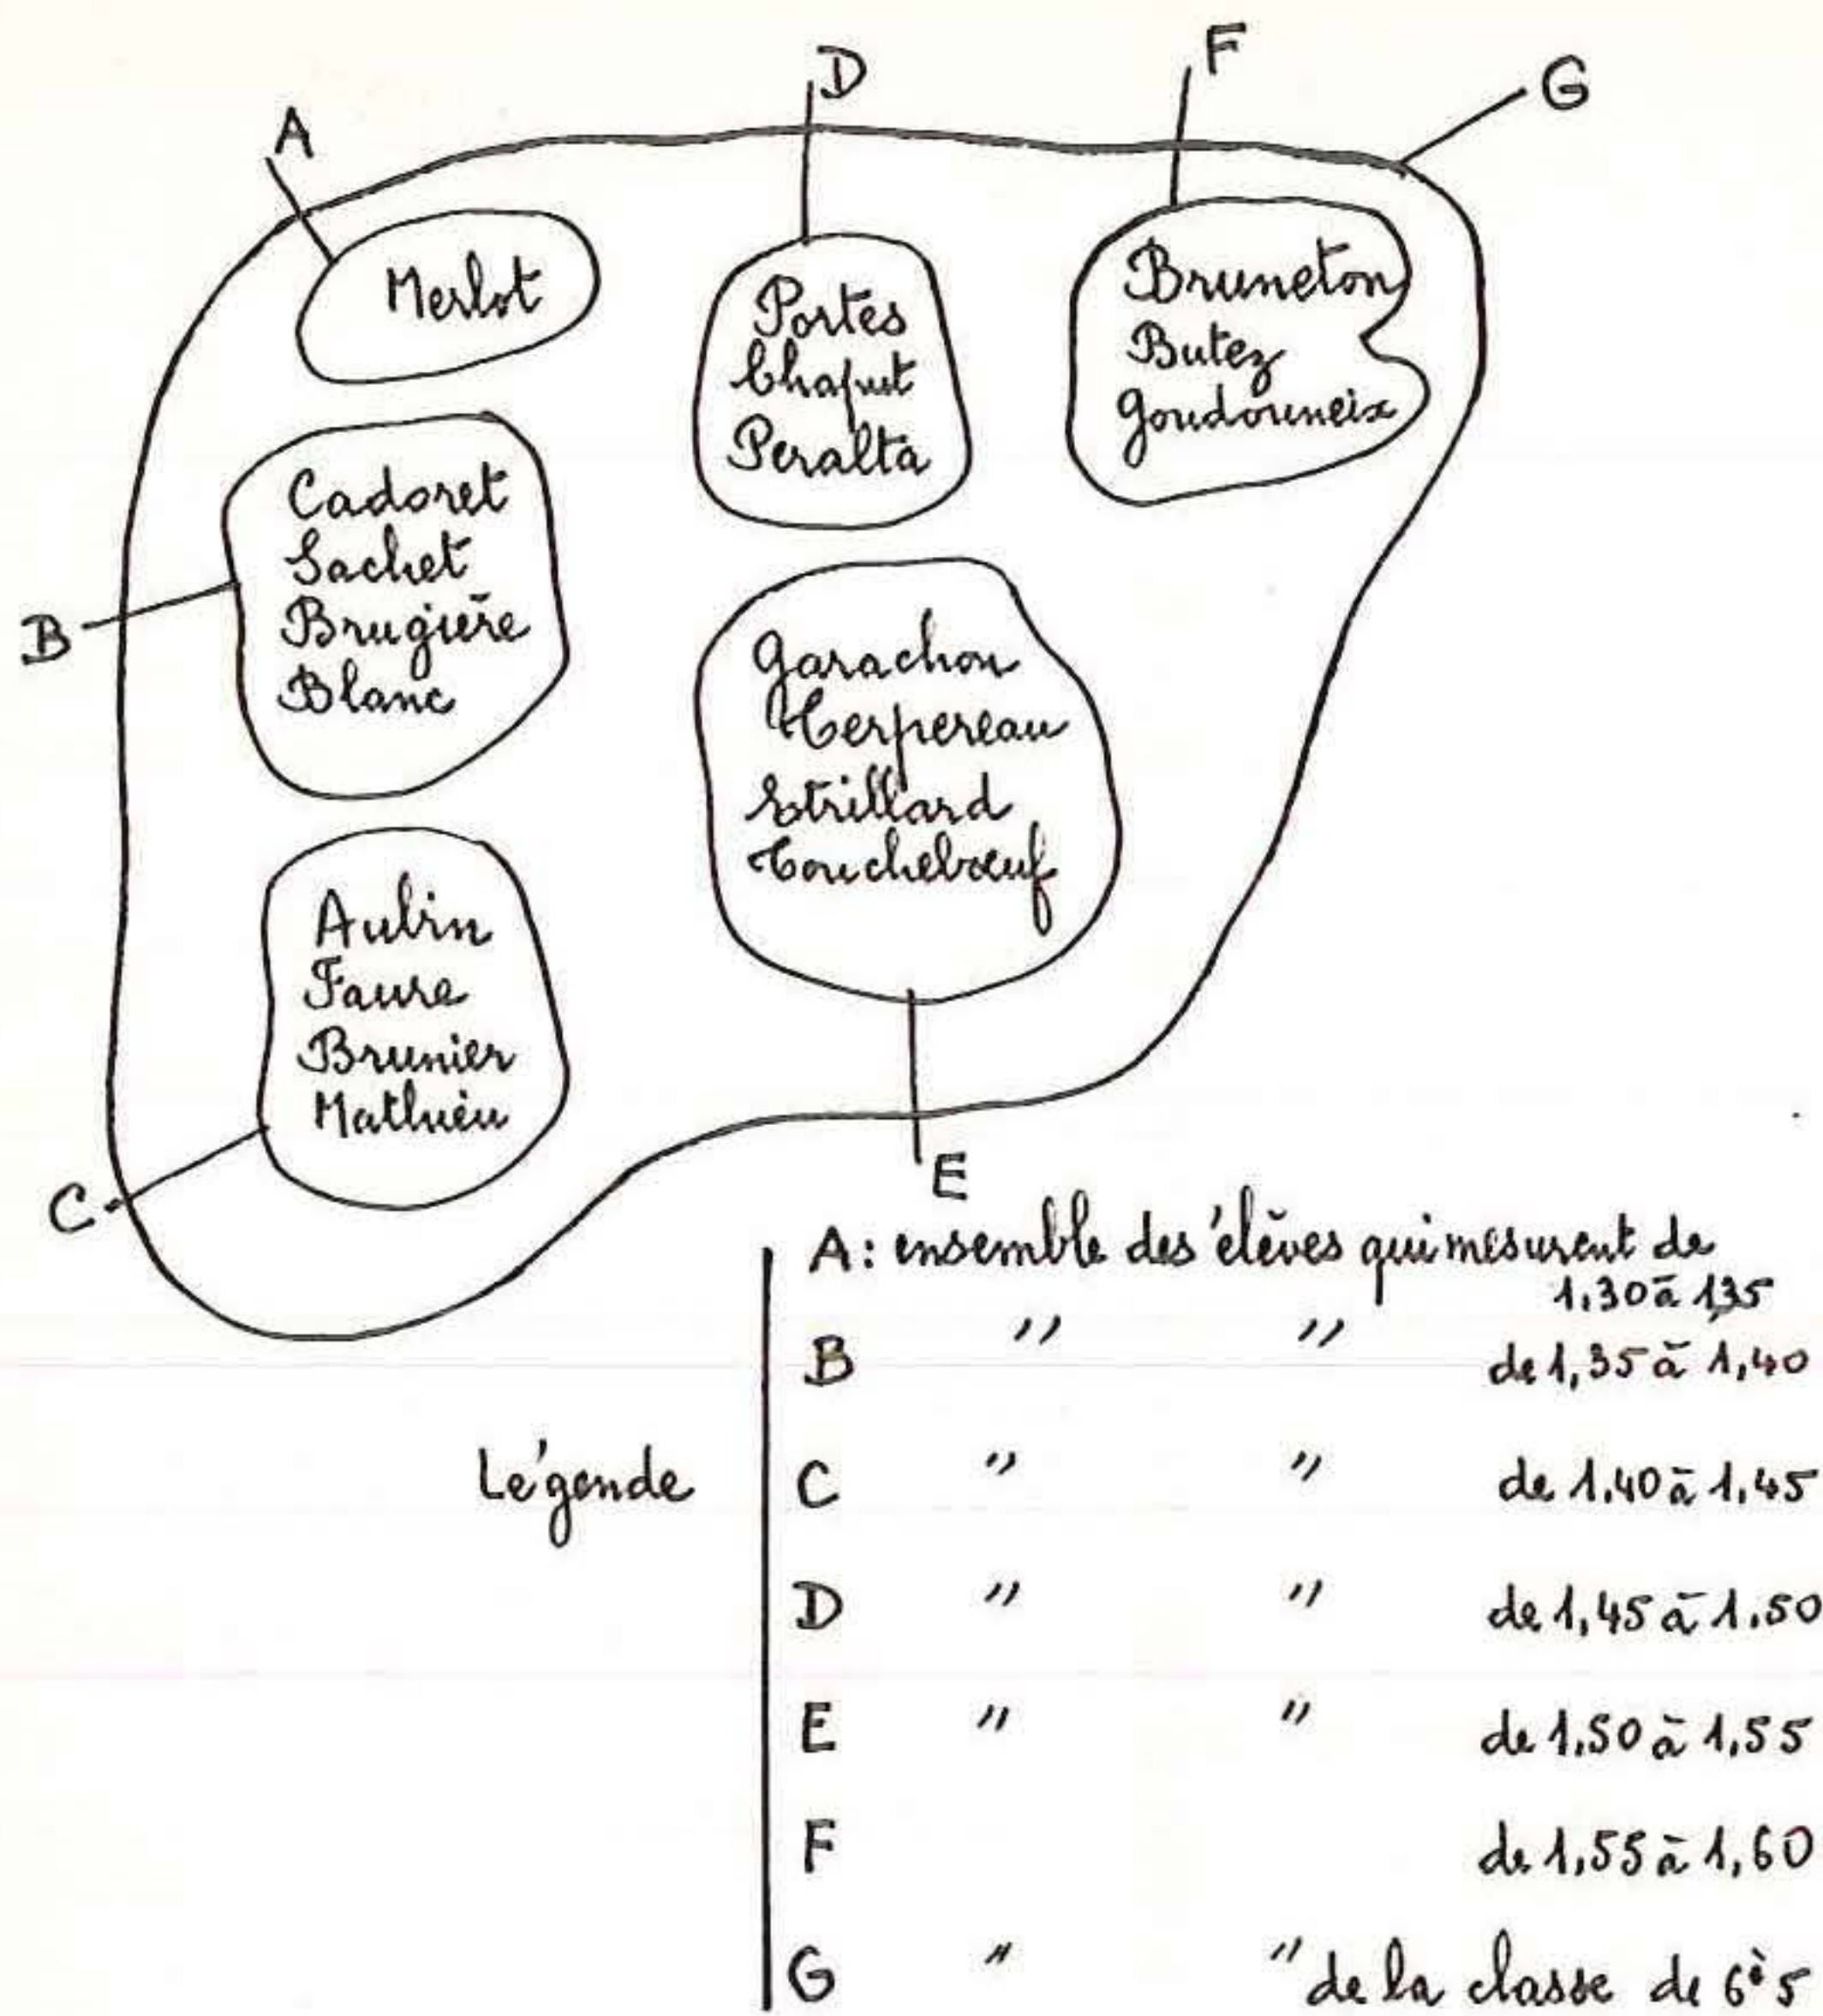 A
D
F
G
Merlot
Portes
Chaput
Peralta
Bruneton
Butez
Goudouneix
B
Cadoret
Sachet
Brugière
Blanc
Garachon
Herpereau
Estrillard
Touchebœuf
Aubin
Faure
Brunier
Mathieu
C
E
Légende
A : ensemble des élèves qui mesurent de
1.30 à 1,35
B " " de 1,35 à 1,40
C " " de 1.40 à 1,45
D " " de 1,45 à 1.50
E " " de 1.50 à 1,55
F de 1,55 à 1,60
G " " de la classe de 6è5